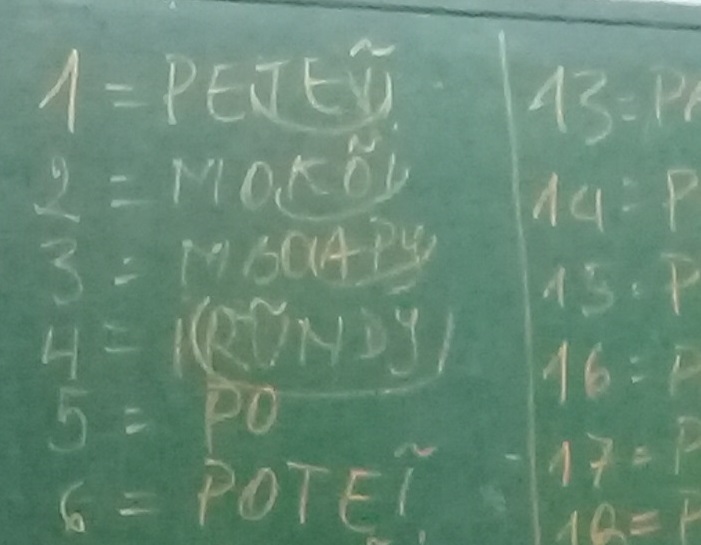 1 = PETEῖ
2 = MOKÕI
3 = MBOAPY
4 = IRŨNDY
5 = PO
6 = POTEĨ
13 = PA
14 = P
15 = P
16 = P
17 = P
18 = P